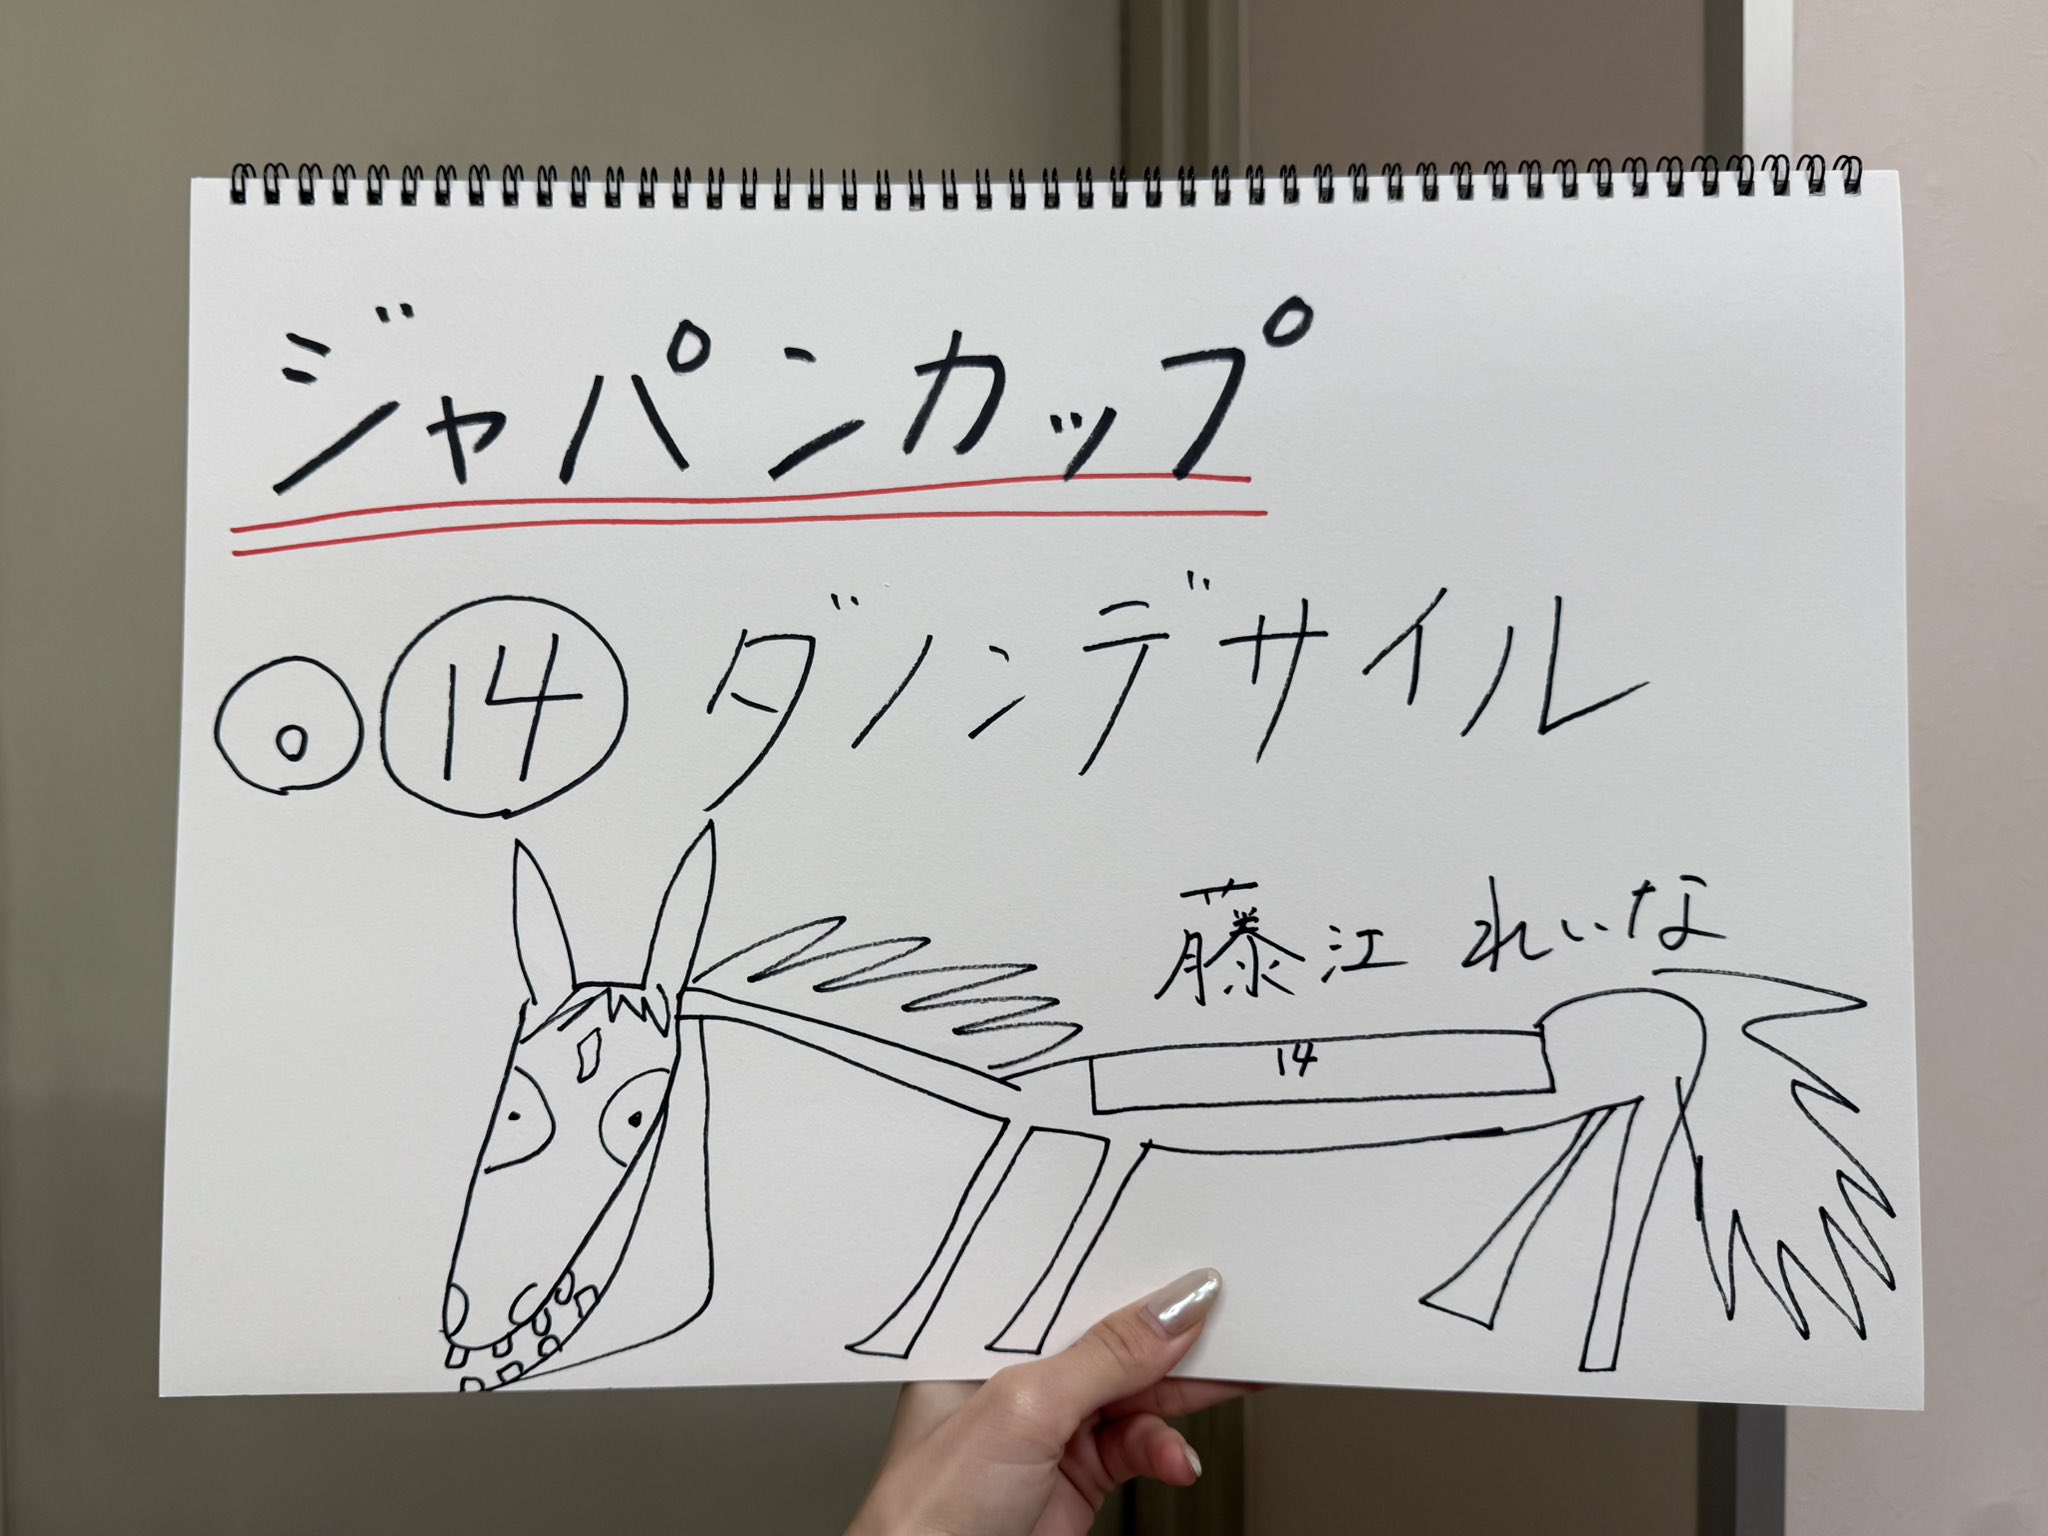 ジャパンカップ
◎ ⑭ ダノンデサイル
藤江 れいな
14